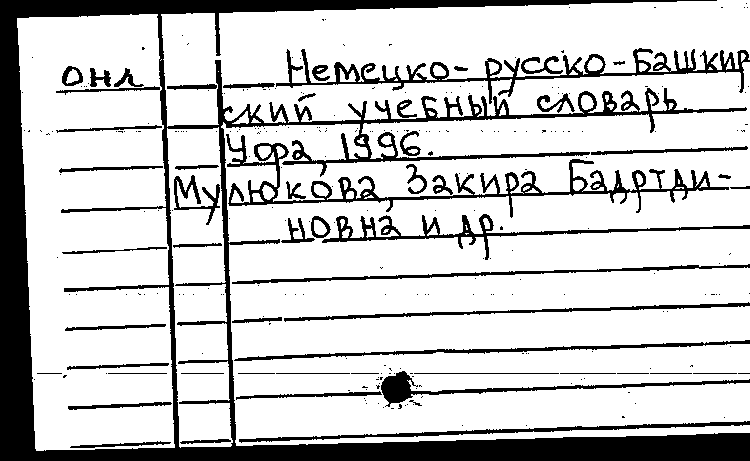 онл Немецко-русско-башкир
ский учебный словарь.
Уфа, 1996.
Мулюкова, Закира Бадртди-
новна и др.